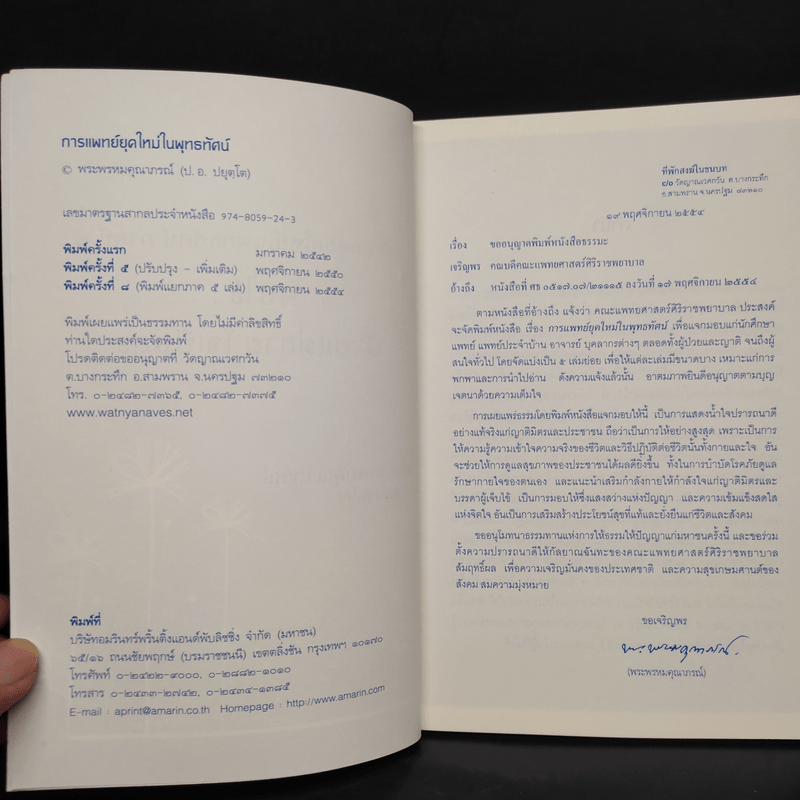 การแพทย์ยุคใหม่ในพุทธทัศน์
© พระพรหมคุณาภรณ์ (ป. อ. ปยุตฺโต)
เลขมาตรฐานสากลประจำหนังสือ 974-8059-24-3
พิมพ์ครั้งแรก มกราคม ๒๕๔๒
พิมพ์ครั้งที่ ๕ (ปรับปรุง - เพิ่มเติม) พฤศจิกายน ๒๕๕๐
พิมพ์ครั้งที่ ๘ (พิมพ์แยกภาค ๕ เล่ม) พฤศจิกายน ๒๕๕๔
พิมพ์เผยแพร่เป็นธรรมทาน โดยไม่มีค่าลิขสิทธิ์
ท่านใดประสงค์จะจัดพิมพ์
โปรดติดต่อขออนุญาตที่ วัดญาณเวศกวัน
ต.บางกระทึก อ.สามพราน จ.นครปฐม ๗๓๒๑๐
โทร. ๐-๒๔๘๒-๗๓๖๕, ๐-๒๔๘๒-๗๓๗๕
www.watnyanaves.net
พิมพ์ที่
บริษัทอมรินทร์พริ้นติ้งแอนด์พับลิชชิ่ง จำกัด (มหาชน)
๖๕/๑๖ ถนนชัยพฤกษ์ (บรมราชชนนี) เขตตลิ่งชัน กรุงเทพฯ ๑๐๑๗๐
โทรศัพท์ ๐-๒๔๒๒-๙๐๐๐, ๐-๒๘๘๒-๑๐๑๐
โทรสาร ๐-๒๔๓๓-๒๗๔๒, ๐-๒๔๓๔-๑๓๘๕
E-mail : aprint@amarin.co.th Homepage : http://www.amarin.com
ที่พักสงฆ์ในชนบท
๘/๑ วัดญาณเวศกวัน ต.บางกระทึก
อ.สามพราน จ.นครปฐม ๗๓๒๑๐
๑๙ พฤศจิกายน ๒๕๕๔
เรื่อง ขออนุญาตพิมพ์หนังสือธรรมะ
เจริญพร คณบดีคณะแพทยศาสตร์ศิริราชพยาบาล
อ้างถึง หนังสือที่ ศธ ๐๕๑๗.๐๗/๒๑๑๑๕ ลงวันที่ ๑๗ พฤศจิกายน ๒๕๕๔
ตามหนังสือที่อ้างถึง แจ้งว่า คณะแพทยศาสตร์ศิริราชพยาบาล ประสงค์
จะจัดพิมพ์หนังสือ เรื่อง การแพทย์ยุคใหม่ในพุทธทัศน์ เพื่อแจกมอบแก่นักศึกษา
แพทย์ แพทย์ประจำบ้าน อาจารย์ บุคลากรต่างๆ ตลอดทั้งผู้ป่วยและญาติ จนถึงผู้
สนใจทั่วไป โดยจัดแบ่งเป็น ๕ เล่มย่อย เพื่อให้แต่ละเล่มมีขนาดบาง เหมาะแก่การ
พกพาและการนำไปอ่าน ดังความแจ้งแล้วนั้น อาตมภาพยินดีอนุญาตตามบุญ
เจตนาด้วยความเต็มใจ
การเผยแพร่ธรรมโดยพิมพ์หนังสือแจกมอบให้นี้ เป็นการแสดงน้ำใจปรารถนาดี
อย่างแท้จริงแก่ญาติมิตรและประชาชน ถือว่าเป็นการให้อย่างสูงสุด เพราะเป็นการ
ให้ความรู้ความเข้าใจความจริงของชีวิตและวิธีปฏิบัติต่อชีวิตนั้นทั้งกายและใจ อัน
จะช่วยให้การดูแลสุขภาพของประชาชนได้ผลดียิ่งขึ้น ทั้งในการบำบัดโรคภัยดูแล
รักษากายใจของตนเอง และแนะนำเสริมกำลังกายให้กำลังใจแก่ญาติมิตรและ
บรรดาผู้เจ็บไข้ เป็นการมอบให้ซึ่งแสงสว่างแห่งปัญญา และความเข้มแข็งสดใส
แห่งจิตใจ อันเป็นการเสริมสร้างประโยชน์สุขที่แท้และยั่งยืนแก่ชีวิตและสังคม
ขออนุโมทนาธรรมทานแห่งการให้ธรรมให้ปัญญาแก่มหาชนครั้งนี้ และขอร่วม
ตั้งความปรารถนาดีให้กัลยาณฉันทะของคณะแพทยศาสตร์ศิริราชพยาบาล
สัมฤทธิ์ผล เพื่อความเจริญมั่นคงของประเทศชาติ และความสุขเกษมศานต์ของ
สังคม สมความมุ่งหมาย
ขอเจริญพร
พระพรหมคุณาภรณ์
(พระพรหมคุณาภรณ์)